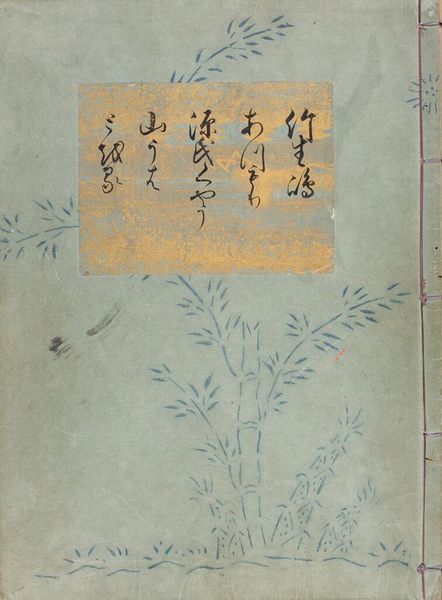 竹生嶋
あつもり
源氏くやう
山うは
とをる